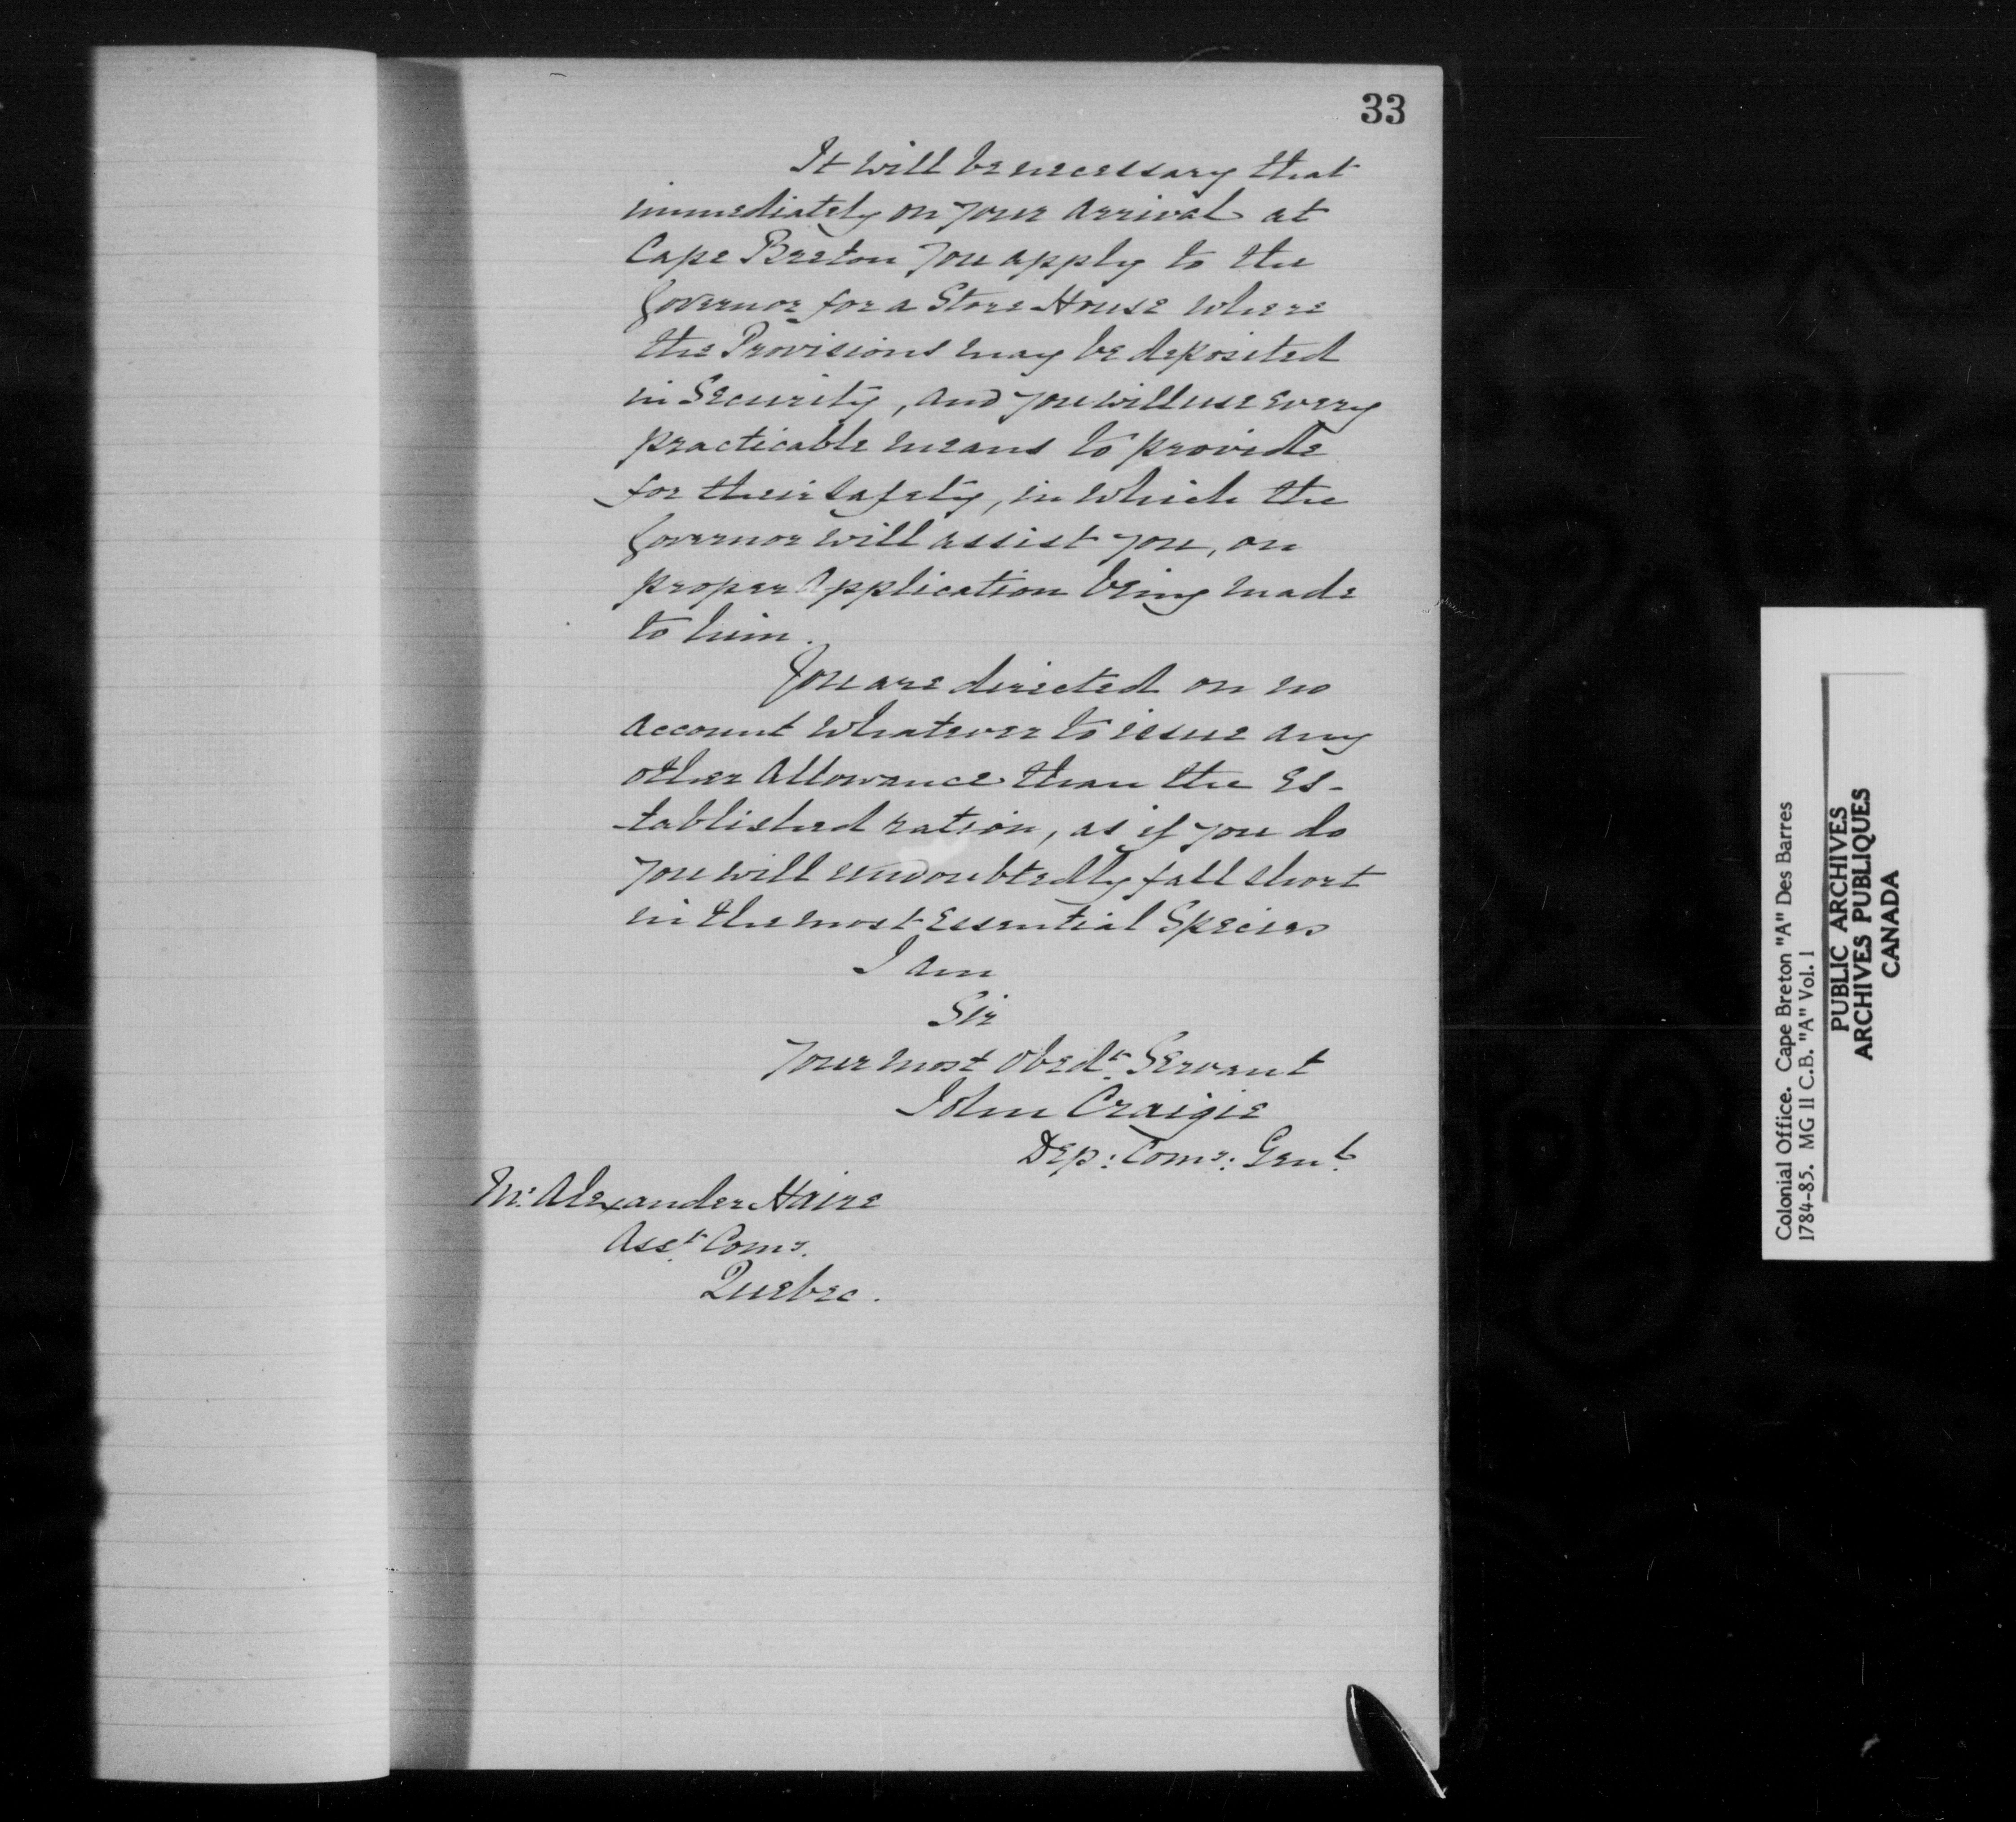 33
It will be necessary that
immediately on your arrival at
Cape Breton you apply to the
Governor for a Store House where
the Provisions may be deposited
in Security, and you will use every
practicable means to provide
for their safety, in which the
Governor will assist you, on
proper Application being made
to him.
You are directed on no
account whatever to issue any
other Allowance than the Es-
tablished ration, as if you do
you will undoubtedly fall short
in the most Essential Species
I am
Sir
Your most Obedt. Servant
John Craigie
Dep: Comy: Genl.
Mr. Alexander Haire
Asst. Comy.
Quebec.
Colonial Office. Cape Breton "A" Des Barres
1784-85. MG 11 C.B. "A" Vol. 1
PUBLIC ARCHIVES
ARCHIVES PUBLIQUES
CANADA